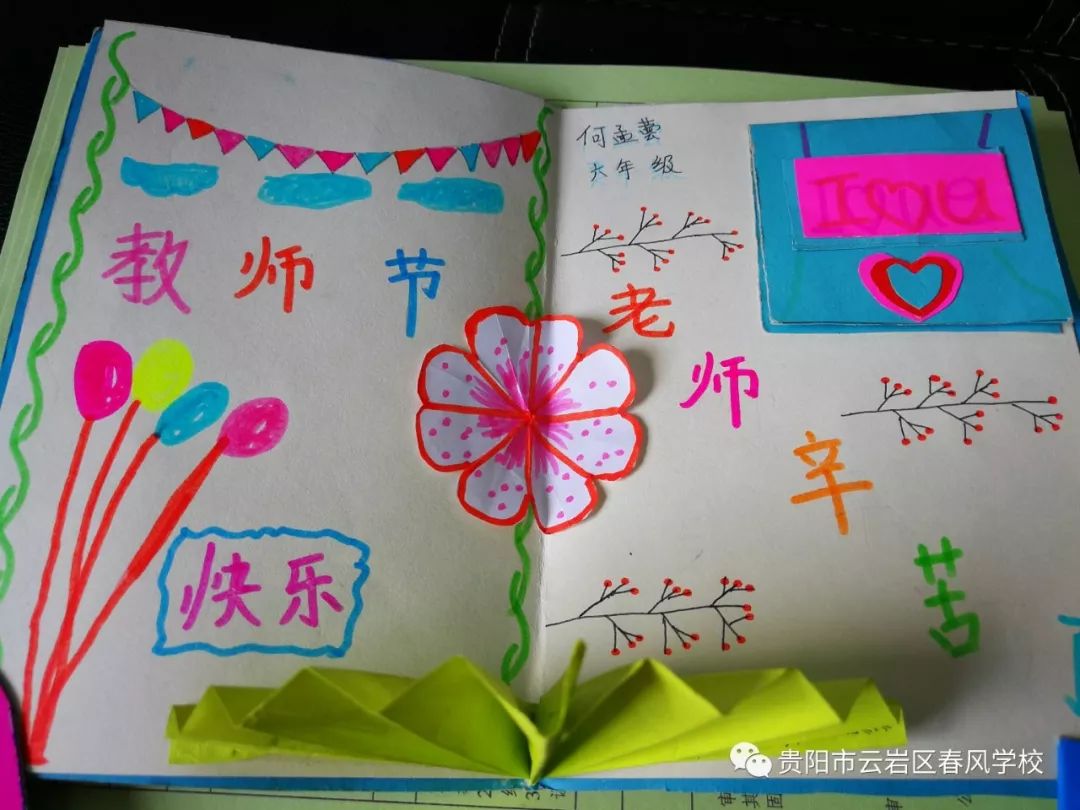 教师节
快乐
何孟芸
六年级
I♡U
老师辛苦
贵阳市云岩区春风学校